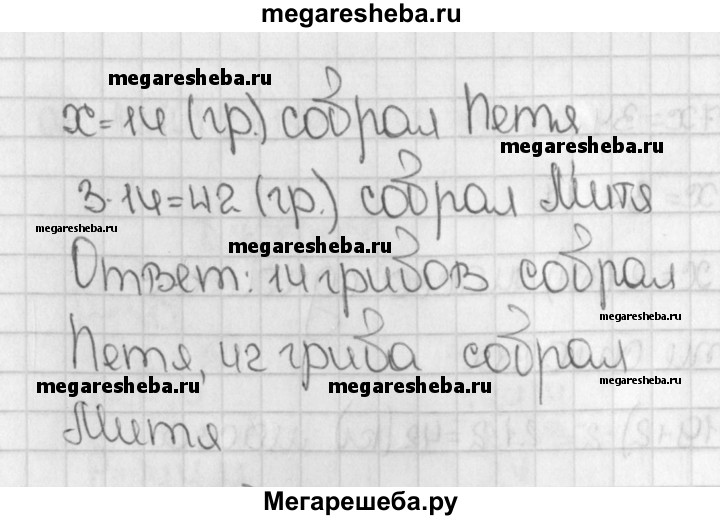 megaresheba.ru
megaresheba.ru
x=14 (гр.) собрал Петя
megaresheba.ru
3·14=42 (гр.) собрал Митя
megaresheba.ru
megaresheba.ru
Ответ: 14 грибов собрал
megaresheba.ru
Петя, 42 гриба собрал
megaresheba.ru
megaresheba.ru
megaresheba.ru
Митя
Мегарешеба.ру